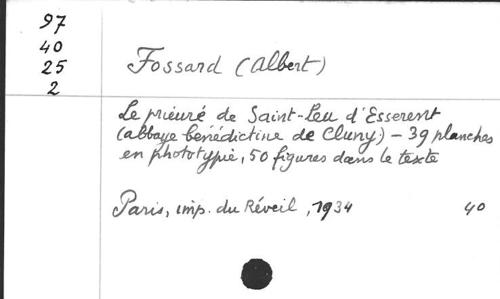 97
40
25
2
Fossard (Albert)
Le prieuré de Saint-Leu d'Esserent
(abbaye bénédictine de Cluny) - 39 planches
en phototypie, 50 figures dans le texte
Paris, imp. du Réveil, 1934 40